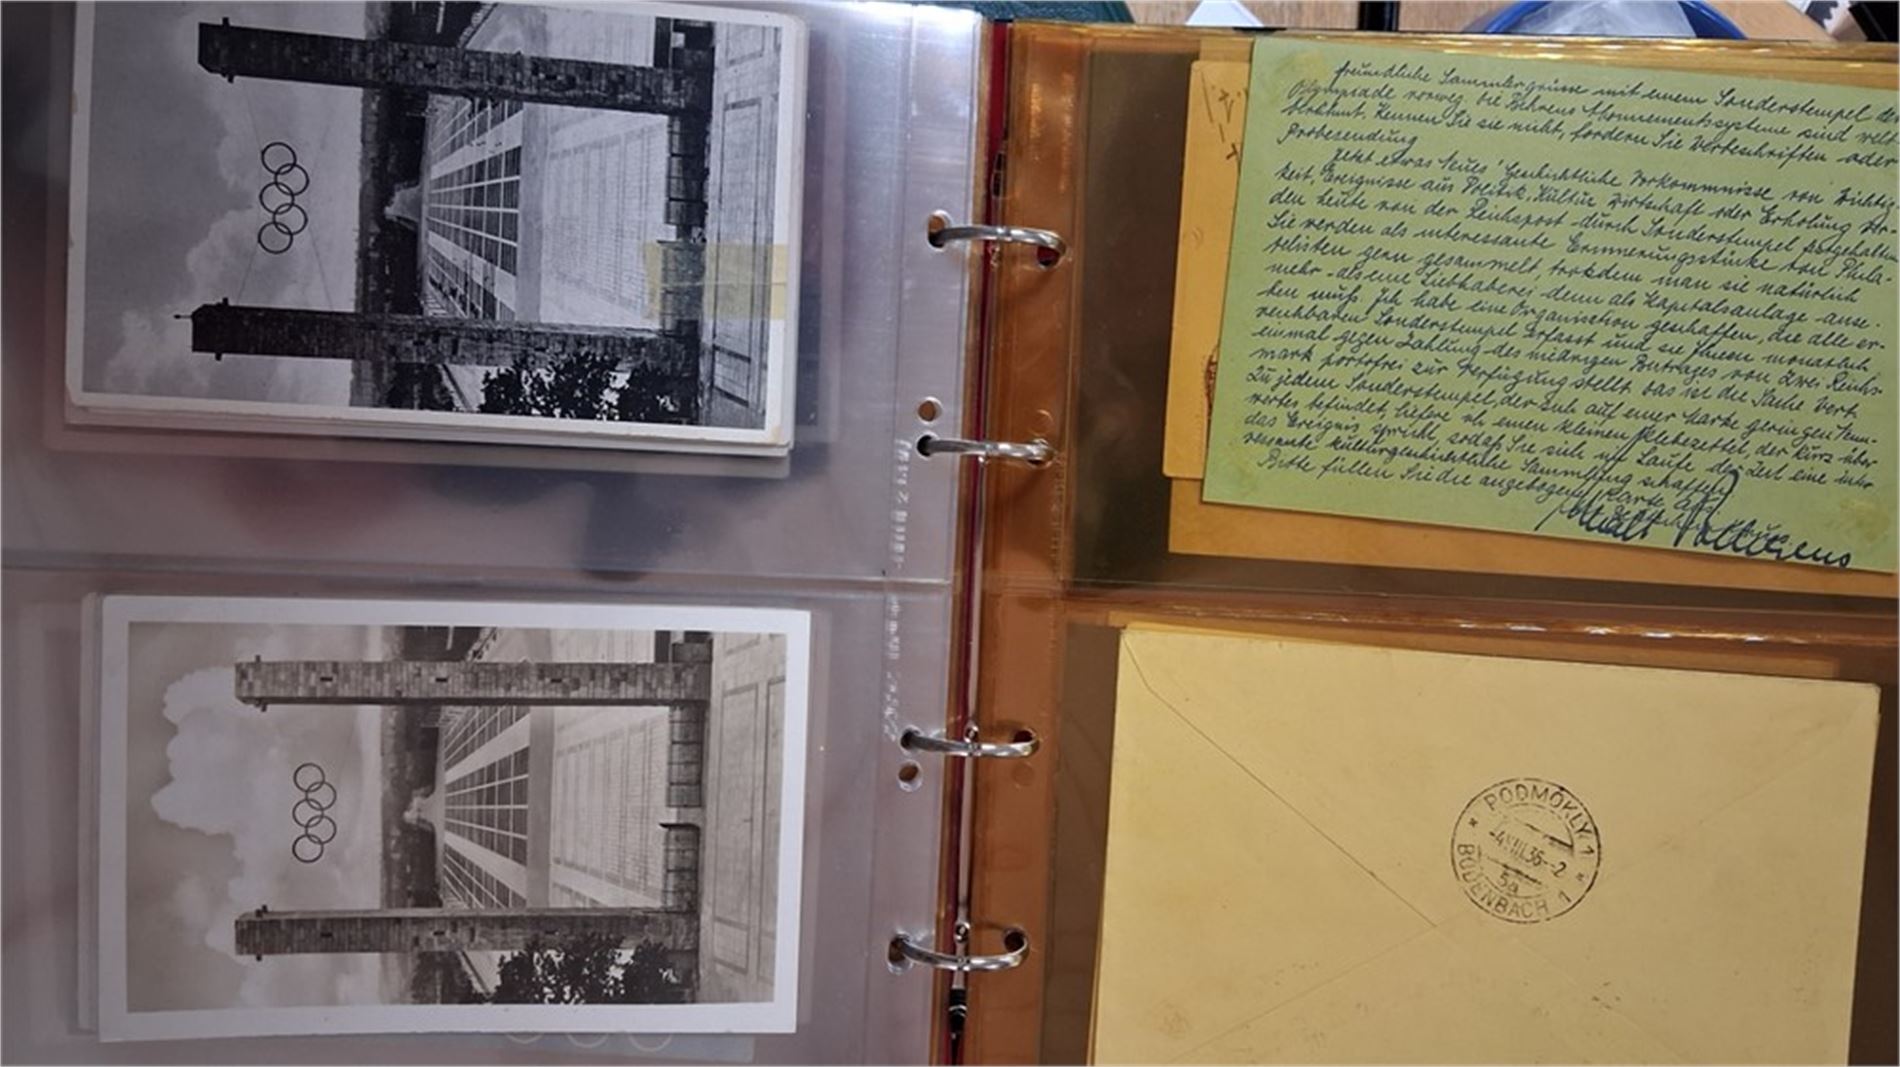 freundliche Sammlergrüsse mit einem Sonderstempel der
Olympiade vorweg. Die Behrens Abonnementssysteme sind welt-
berühmt. Kennen Sie sie nicht, fordern Sie Werbeschriften oder
Probesendung
Jetzt etwas Neues! Geschichtliche Vorkommnisse von Wichtig-
keit, Ereignisse aus Politik, Kultur, Wirtschaft oder Erholung wer-
den heute von der Reichspost durch Sonderstempel festgehalten
Sie werden als interessante Erinnerungsstücke von Phila-
telisten gern gesammelt, trotzdem man sie natürlich
mehr als eine Liebhaberei denn als Kapitalsanlage anse-
hen muß. Ich habe eine Organisation geschaffen, die alle er-
reichbaren Sonderstempel erfasst und sie Ihnen monatlich
einmal gegen Zahlung des niedrigen Betrages von zwei Reichs-
mark portofrei zur Verfügung stellt. Das ist die Sache wert.
Zu jedem Sonderstempel, der sich auf einer Karte geringen Nenn-
wertes befindet, liefere ich einen kleinen Klebezettel, der kurz über
das Ereignis spricht, sodaß Sie sich im Laufe der Zeit eine inte-
ressante kulturgeschichtliche Sammlung schaffen
Bitte füllen Sie die angebogene Karte aus
PODMOKLY 1
-4.VIII.36--2
5a
BODENBACH 1